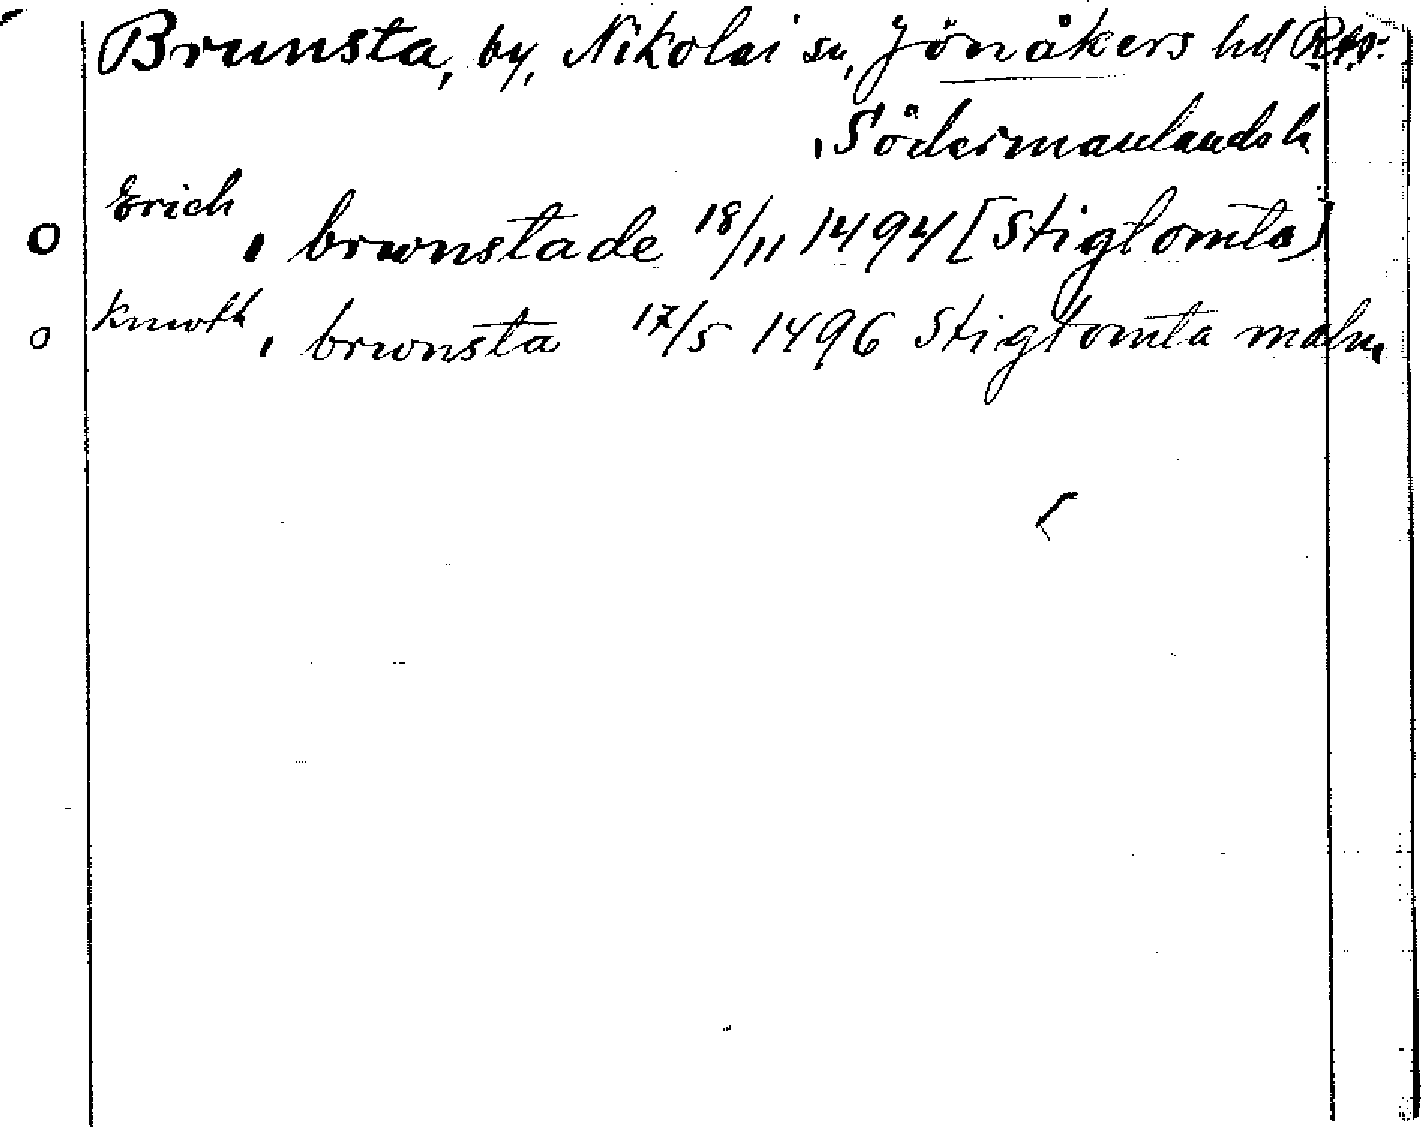 Brunsta, by, Nikolai sn, Jönåkers hd Rep.
Södermanlands l.
Erich, i brwnstade 18/11 1494 [Stigtomta]
o Knwth, i brwnsta 17/5 1496 Stigtomta malm